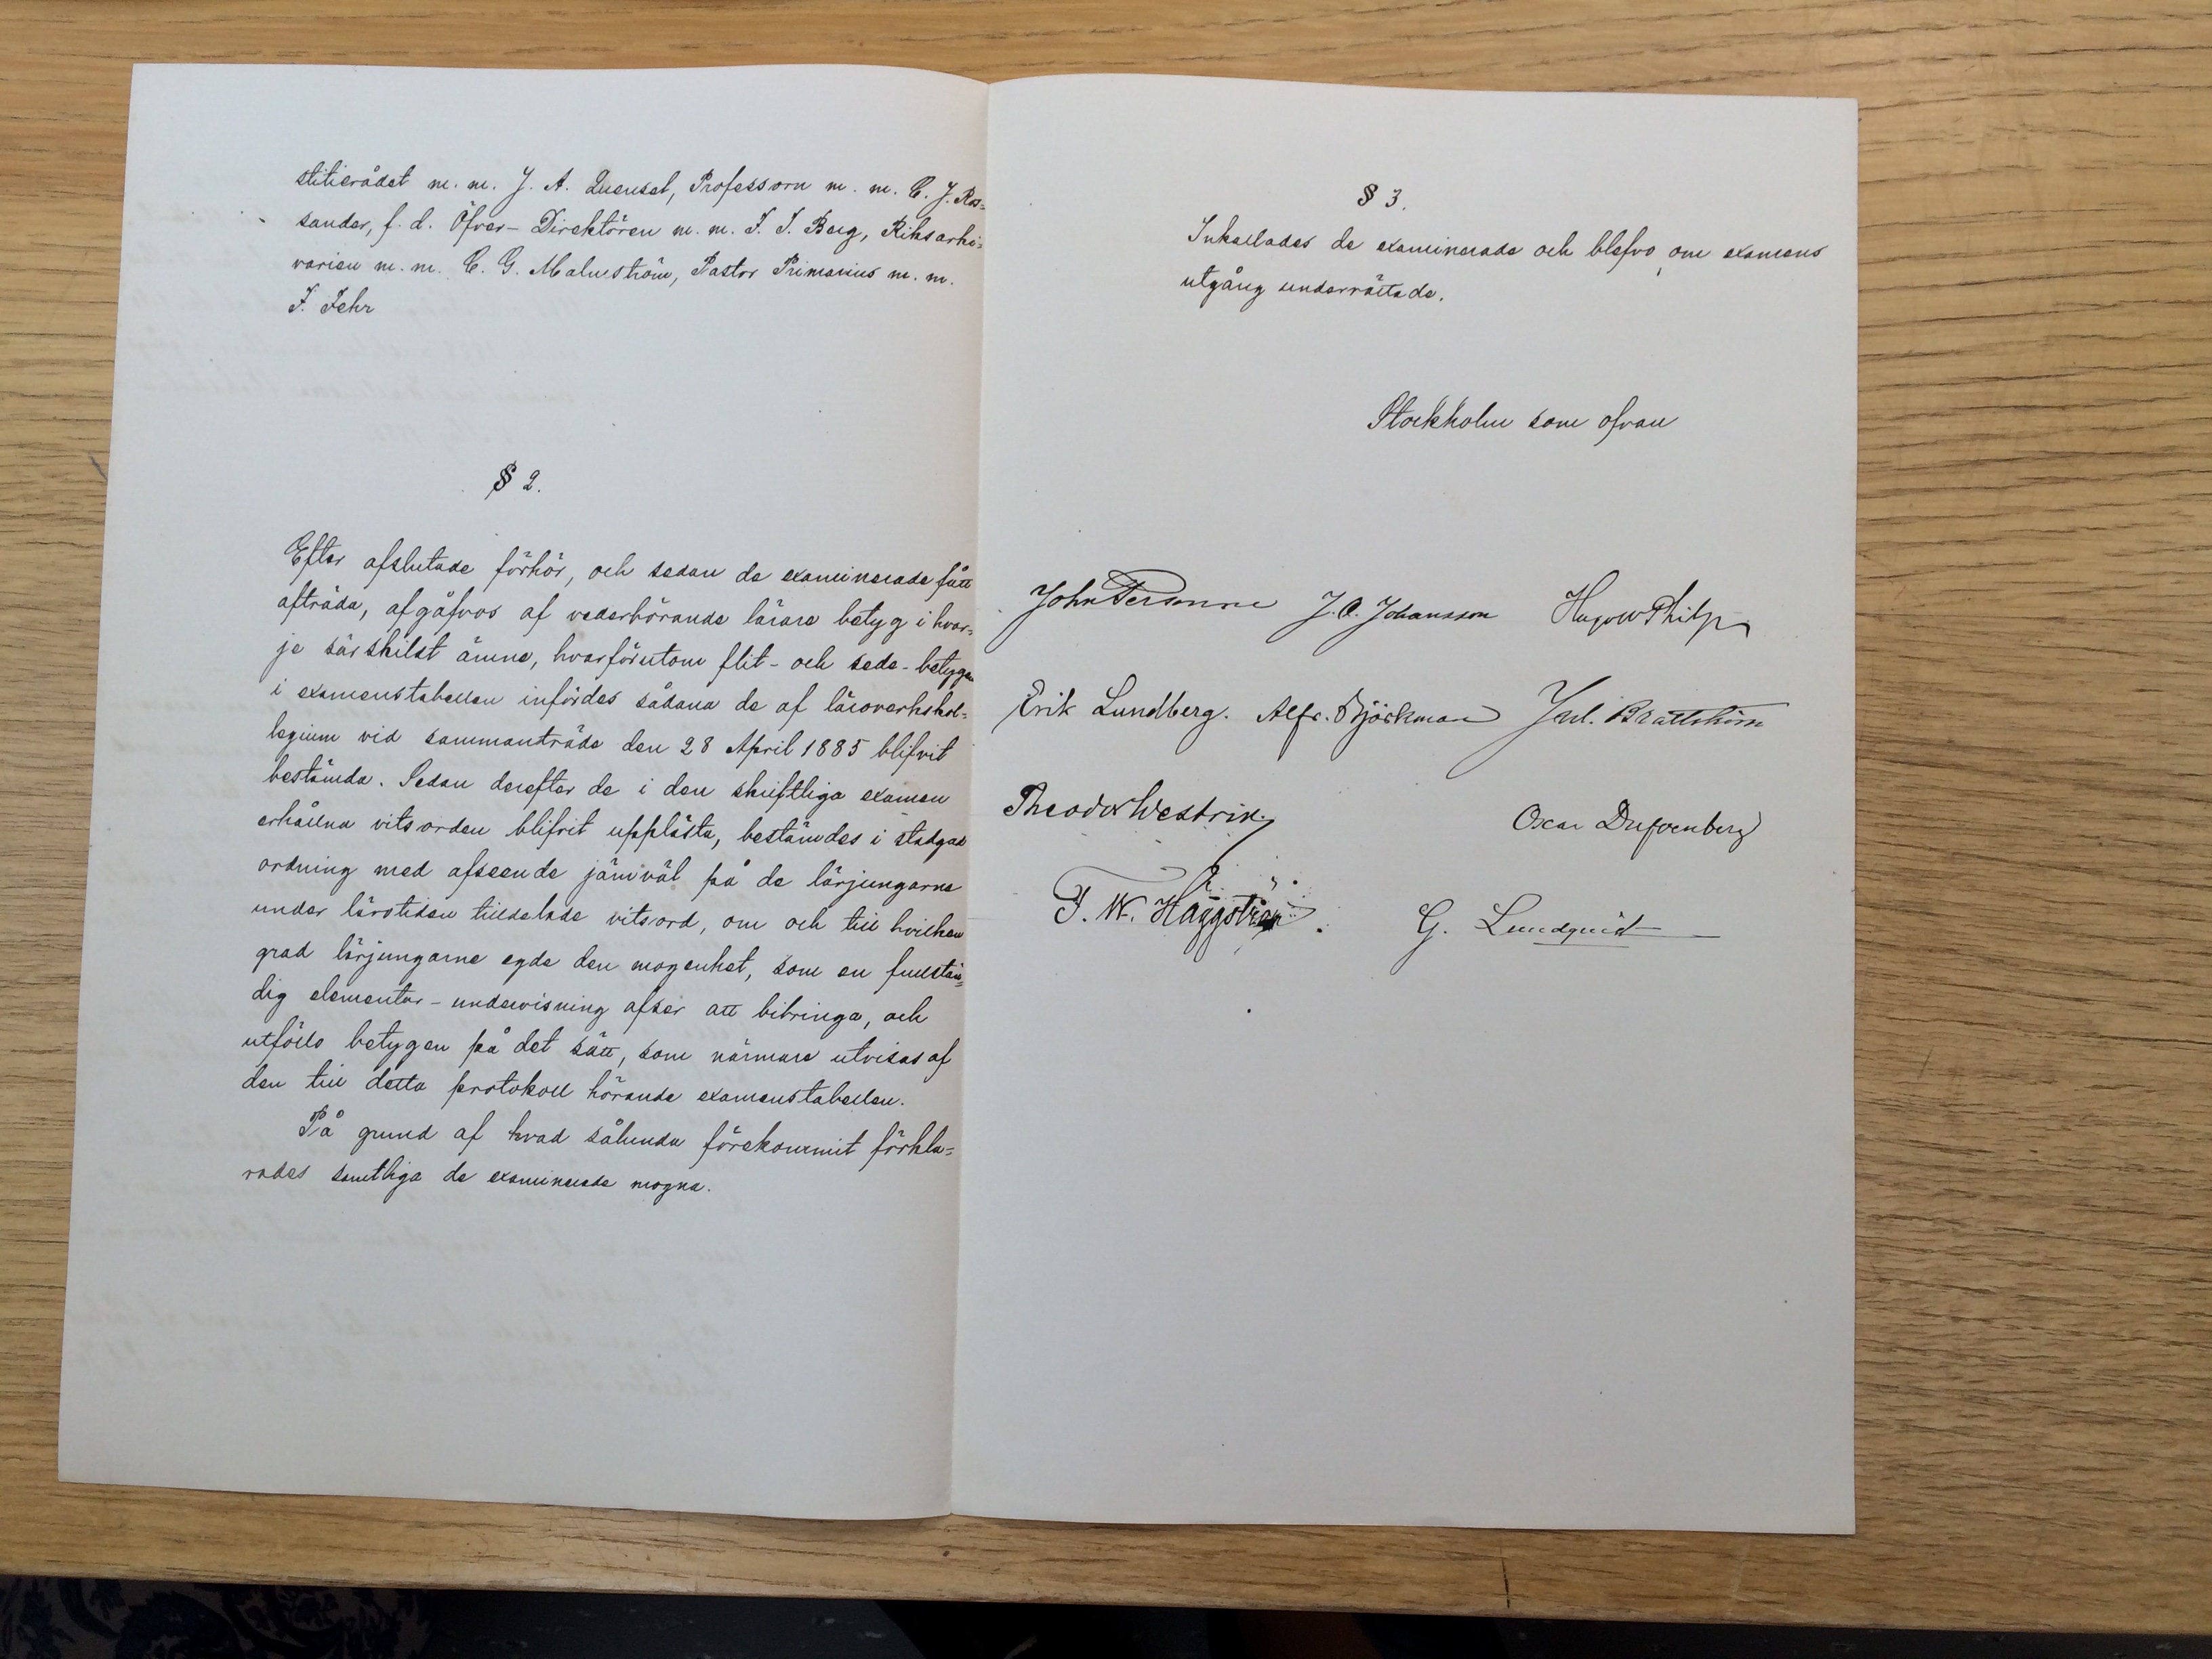 stitierådet m. m. J. A. Quensel, Professorn m. m. C. J. Ros=
sander, f. d. Öfver-Direktören m. m. F. T. Berg, Riksarki=
varien m. m. C. G. Malmström, Pastor Primarius m. m.
F. Fehr
§ 2.
Efter afslutade förhör, och sedan de examinerade fått
afträda, afgåfvos af vederhörande lärare betyg i hvar=
je särskilt ämne, hvarförutom flit- och sede-betygen
i examenstabellen infördes sådana de af läroverkskol=
legium vid sammanträde den 28 April 1885 blifvit
bestämda. Sedan derefter de i den skriftliga examen
erhållna vitsorden blifvit upplästa, bestämdes i stadgad
ordning med afseende jämväl på de lärjungarne
under lärotiden tilldelade vitsord, om och till hvilken
grad lärjungarne egde den mogenhet, som en fullstän=
dig elementar-undervisning afser att bibringa, och
utförds betygen på det sätt, som närmare utvisas af
den till detta protokoll hörande examenstabellen.
På grund af hvad sålunda förekommit förkla=
rades samtliga de examinerade mogna.
§ 3.
Inkallades de examinerade och blefvo om examens
utgång underrättade.
Stockholm som ofvan
John Personne J. O. Johansson Hugo W Philp
Erik Lundberg. Alfr. Björkman Jul. Brattström
Theodor Westrin. Oscar Dufvenberg
F. W. Häggström. G. Lundquist